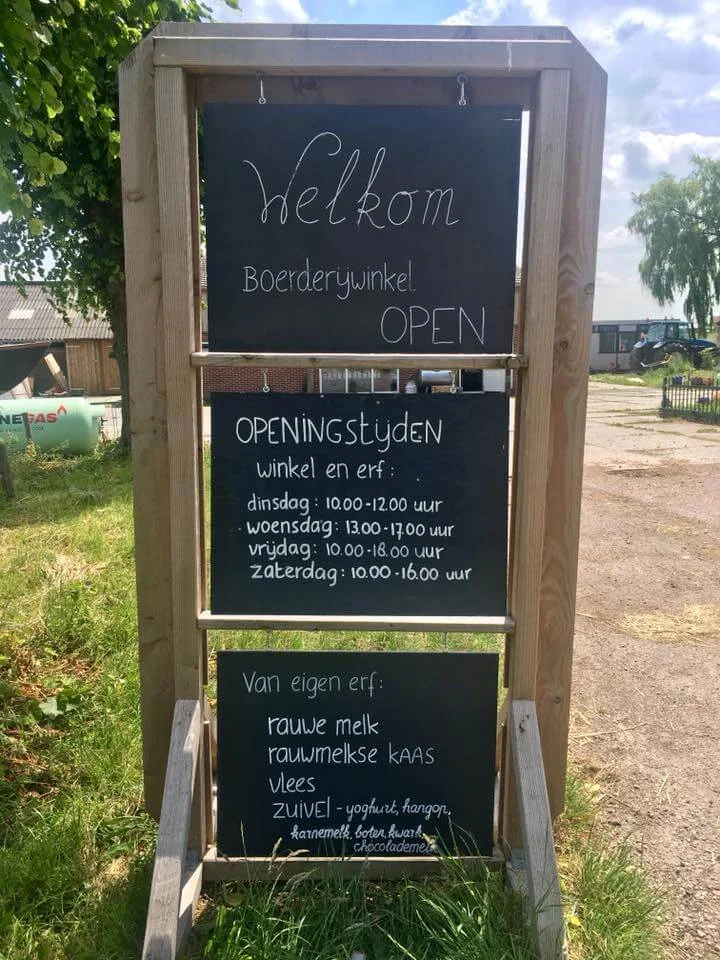 Welkom
Boerderijwinkel
OPEN
OPENINGStijDEN
winkel en erf:
dinsdag: 10.00-12.00 uur
woensdag: 13.00-17.00 uur
vrijdag: 10.00-18.00 uur
zaterdag: 10.00-16.00 uur
Van eigen erf:
rauwe melk
rauwmelkse kAAS
vlees
ZUIVEl - yoghurt, hangop,
karnemelk, boter, kwark,
NEGAS